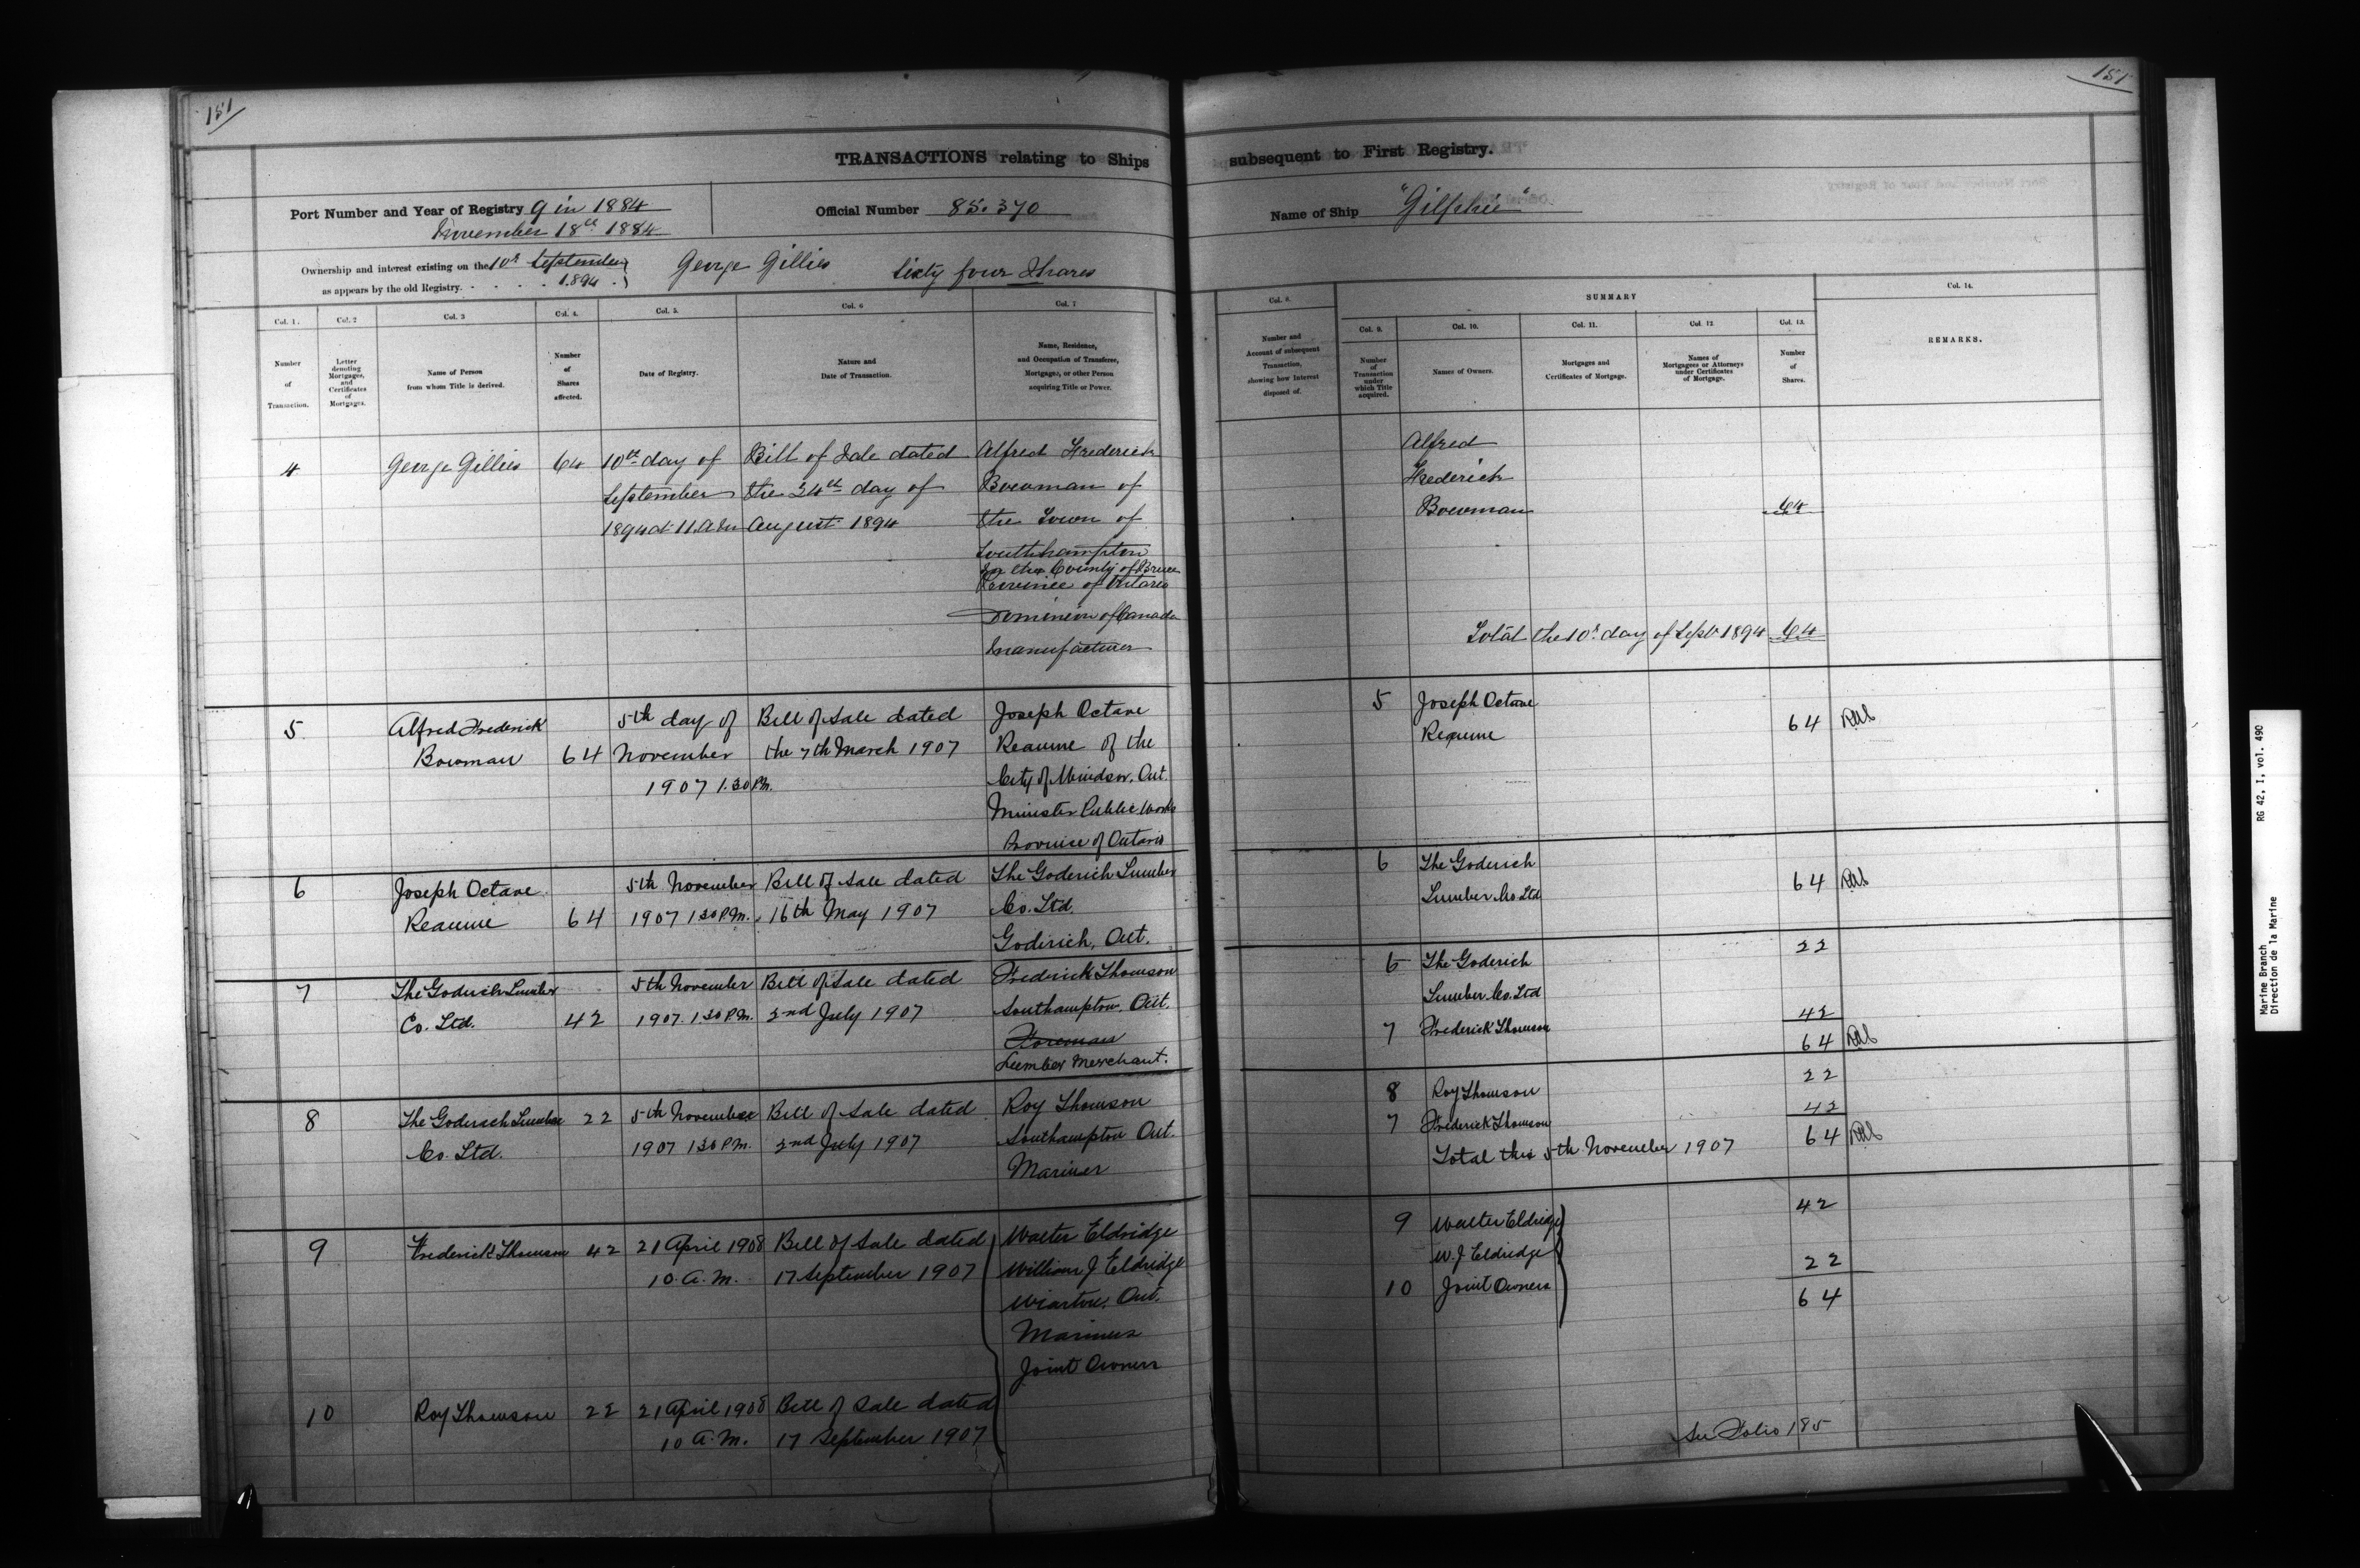 151
151
TRANSACTIONS relating to Ships subsequent to First Registry.
Port Number and Year of Registry 9 in 1884
November 18th 1884
Official Number 85.370
Name of Ship "Gilphie"
Ownership and interest existing on the 10th September
as appears by the old Registry. . . . . 1894 .
George Gillies Sixty four Shares
Col. 1.
Number
of
Transaction.
Col. 2
Letter
denoting
Mortgages,
and
Certificates
of
Mortgages.
Col. 3
Name of Person
from whom Title is derived.
Col. 4.
Number
of
Shares
affected.
Col. 5.
Date of Registry.
Col. 6
Nature and
Date of Transaction.
Col. 7
Name, Residence,
and Occupation of Transferee,
Mortgagee, or other Person
acquiring Title or Power.
Col. 8.
Number and
Account of subsequent
Transaction,
showing how Interest
disposed of.
SUMMARY
Col. 9.
Number
of
Transaction
under
which Title
acquired.
Col. 10.
Names of Owners.
Col. 11.
Mortgages and
Certificates of Mortgage.
Col. 12
Names of
Mortgagees or Attorneys
under Certificates
of Mortgage.
Col. 13.
Number
of
Shares.
Col. 14.
REMARKS.
4
George Gillies
64
10th day of
September
1894 at 11 a.m
Bill of Sale dated
the 24th day of
August 1894
Alfred Frederick
Bowman of
the Town of
Southampton
in the County of Bruce
Province of Ontario
Dominion of Canada
Manufacturer
Alfred
Frederick
Bowman
64
Total the 10th day of Sept 1894 64
5
Alfred Frederick
Bowman
64
5th day of
November
1907 1.30 P.M.
Bill of Sale dated
the 7th March 1907
Joseph Octave
Reaume of the
City of Windsor, Ont.
Minister Public Works
Province of Ontario
5
Joseph Octave
Reaume
64
6
Joseph Octave
Reaume
64
5th November
1907 1 30 P.M.
Bill of Sale dated
16th May 1907
The Goderich Lumber
Co. Ltd.
Goderich, Ont.
6
The Goderich
Lumber Co. Ltd
64
7
The Goderich Lumber
Co. Ltd.
42
5th November
1907. 1 30 P.M.
Bill of Sale dated
2nd July 1907
Frederick Thomson
Southampton, Ont.
Foreman
Lumber Merchant.
6
The Goderich
Lumber Co. Ltd
22
7
Frederick Thomson
42
64
8
The Goderich Lumber
Co. Ltd.
22
5th November
1907 1 30 P.M.
Bill of Sale dated
2nd July 1907
Roy Thomson
Southampton Ont.
Mariner
8
Roy Thomson
22
7
Frederick Thomson
42
Total this 5th November 1907 64
9
Frederick Thomson
42
21 April 1908
10 A.M.
Bill of Sale dated
17 September 1907
Walter Eldridge
William J Eldridge
Wiarton, Ont.
Mariners
Joint Owners
9
Walter Eldridge
W. J Eldridge
10
Joint Owners
42
22
64
10
Roy Thomson
22
21 April 1908
10 A.M.
Bill of Sale dated
17 September 1907
See Folio 185
RG 42, I, vol. 490
Marine Branch
Direction de la Marine